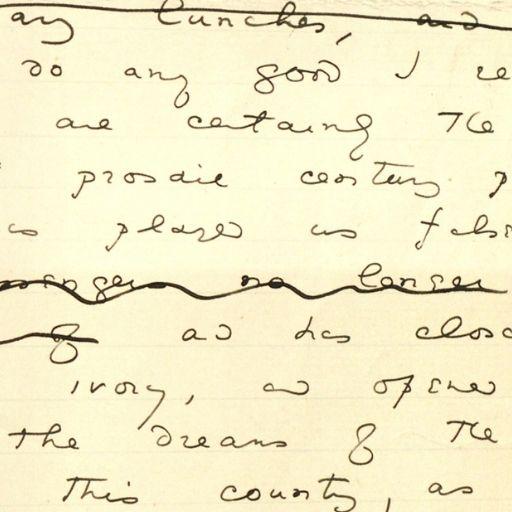 any lunches, and
do any good I re
are certainly The
prosaic century p
as played us false
messengers no longer
of and has close
ivory, and opened
the dreams of the
this country, as